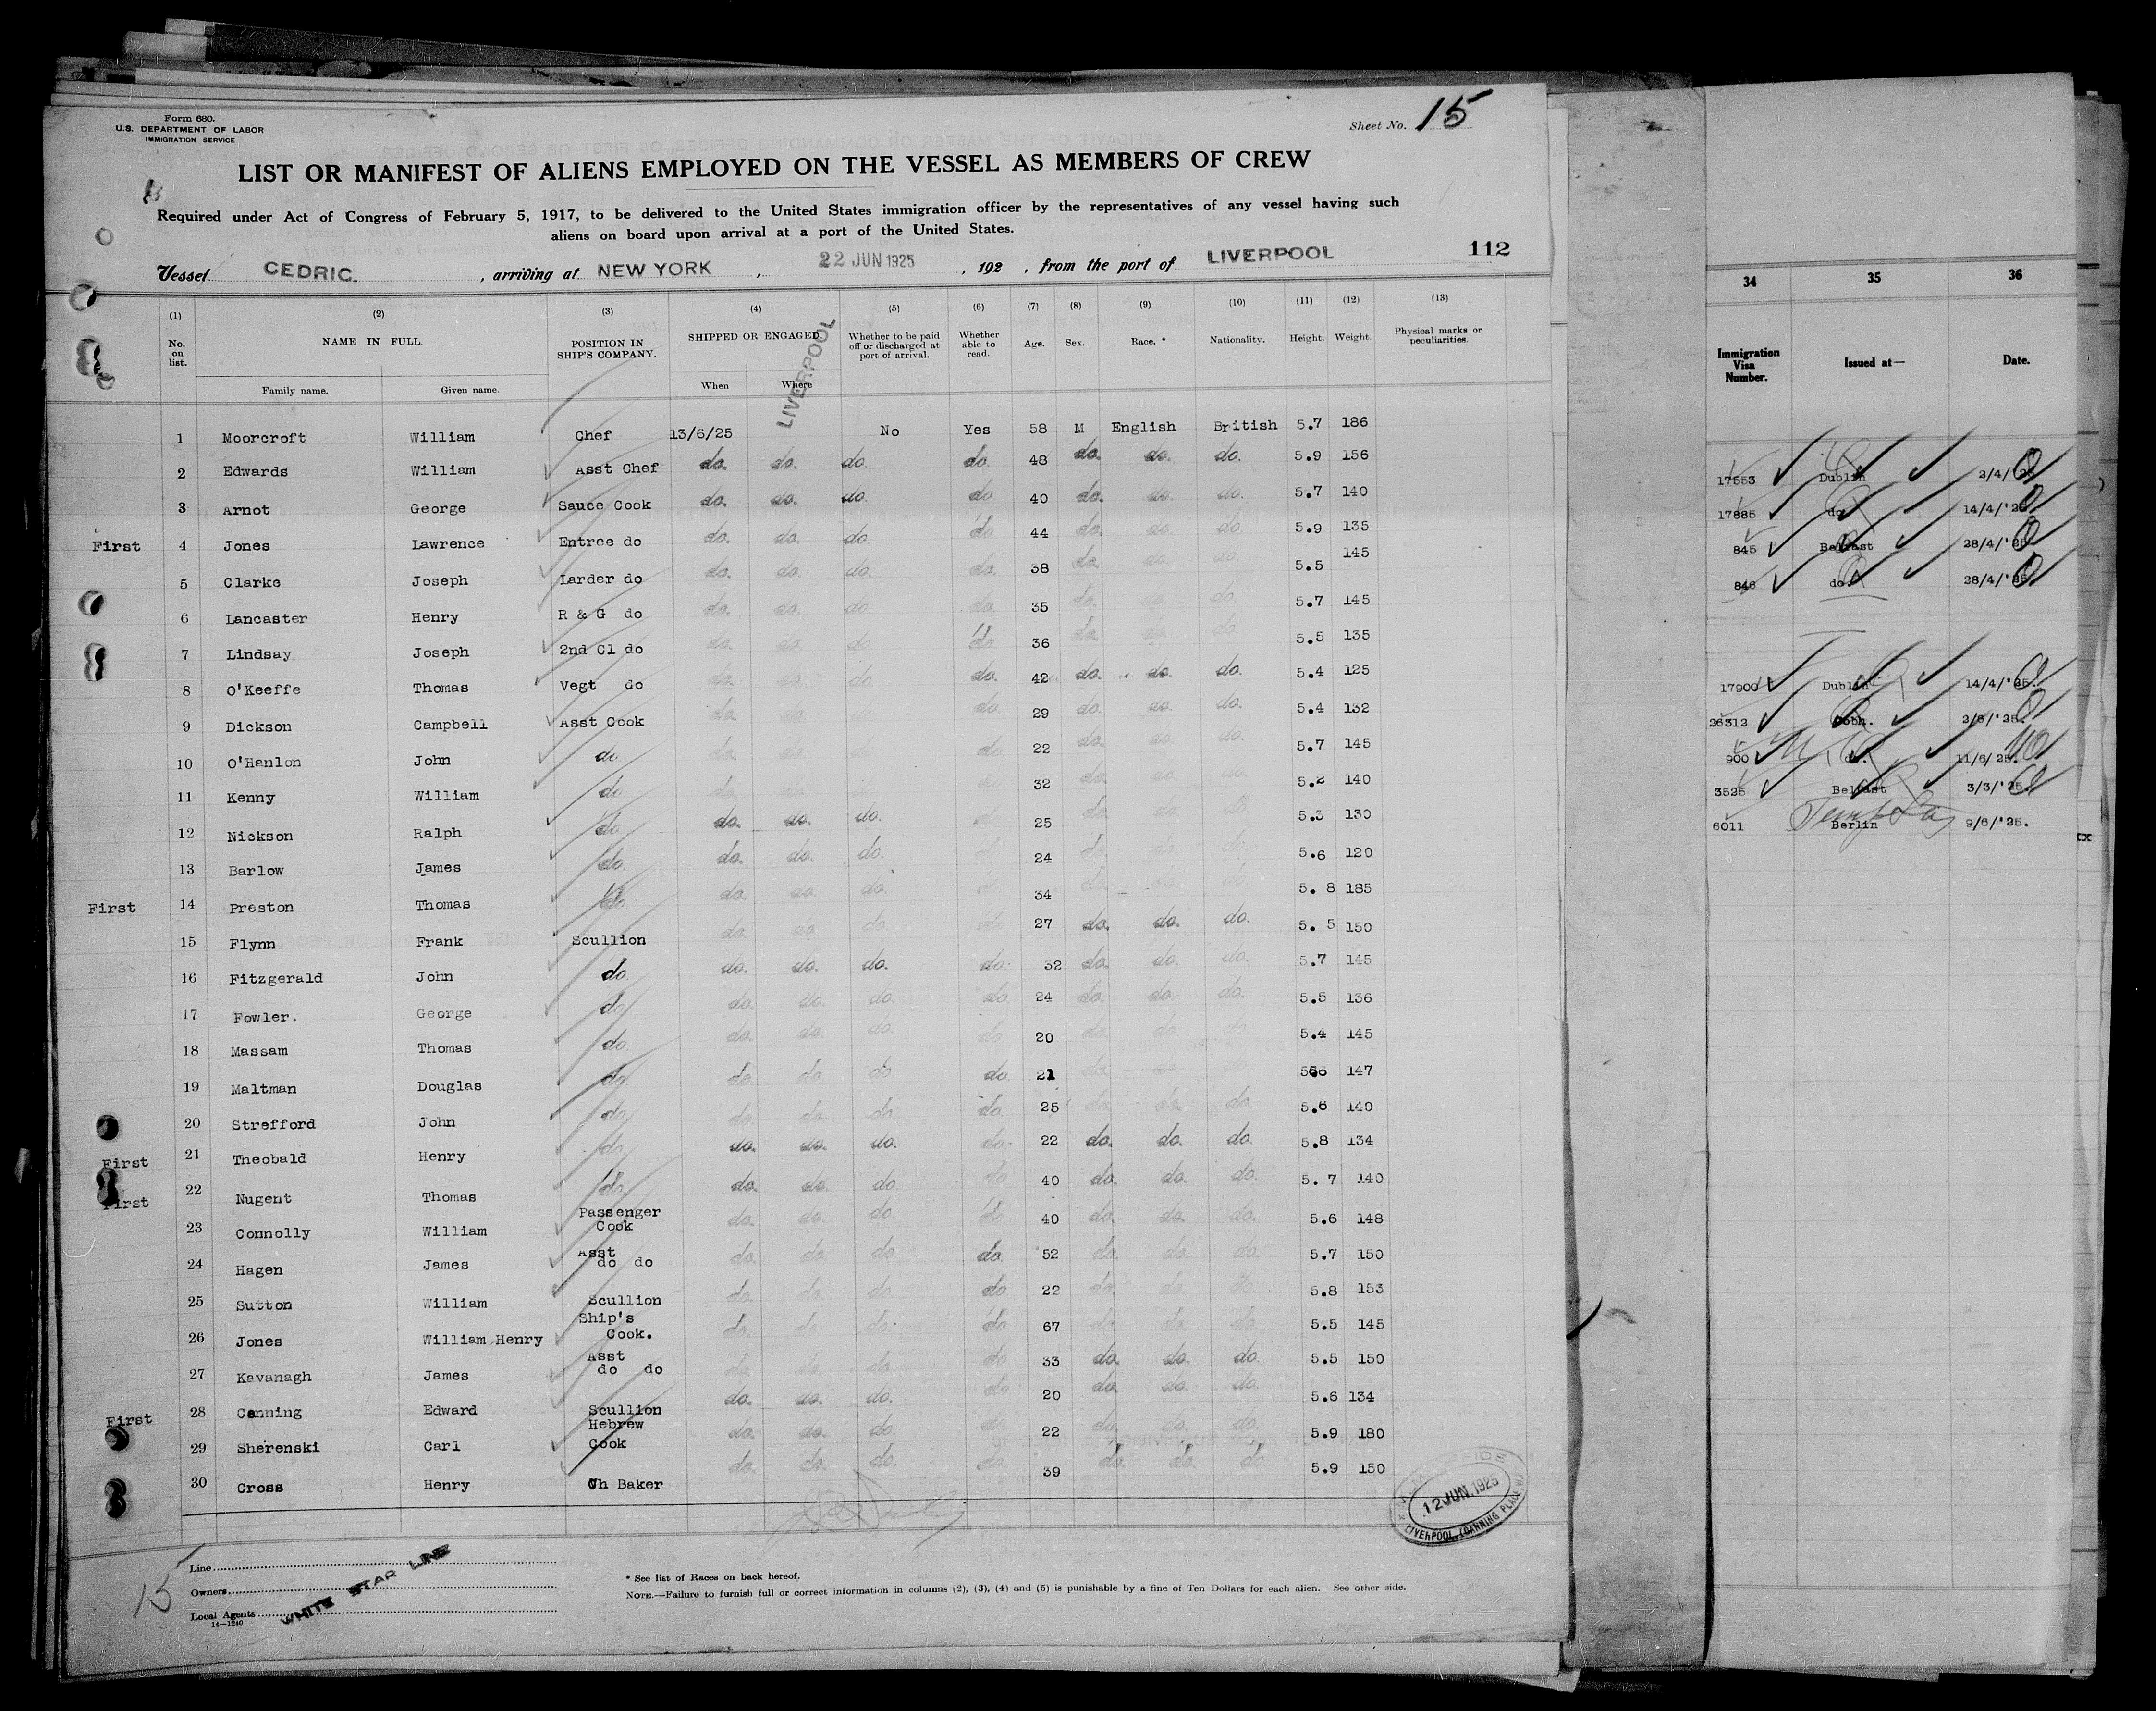 Form 680.
U.S. DEPARTMENT OF LABOR
IMMIGRATION SERVICE
Sheet No. 15
LIST OR MANIFEST OF ALIENS EMPLOYED ON THE VESSEL AS MEMBERS OF CREW
Required under Act of Congress of February 5, 1917, to be delivered to the United States immigration officer by the representatives of any vessel having such
aliens on board upon arrival at a port of the United States.
112
Vessel CEDRIC. , arriving at NEW YORK , 22 JUN 1925 , 192 , from the port of LIVERPOOL
(1) (2) (3) (4) (5) (6) (7) (8) (9) (10) (11) (12) (13)
No. on list. NAME IN FULL. POSITION IN SHIP'S COMPANY. SHIPPED OR ENGAGED. Whether to be paid off or discharged at port of arrival. Whether able to read. Age. Sex. Race. * Nationality. Height. Weight. Physical marks or peculiarities.
Family name. Given name. When Where
LIVERPOOL
1 Moorcroft William Chef 13/6/25 No Yes 58 M English British 5.7 186
2 Edwards William Asst Chef do. do. do. do. 48 do. do. do. 5.9 156
3 Arnot George Sauce Cook do. do. do. do 40 do. do. do. 5.7 140
First 4 Jones Lawrence Entree do do. do. do do 44 do. do. do. 5.9 135
5 Clarke Joseph Larder do do. do. do. do. 38 do. do. do. 5.5 145
6 Lancaster Henry R & G do do. do. do. do. 35 do. do. do. 5.7 145
7 Lindsay Joseph 2nd Cl do do. do. do. do. 36 do. do. do. 5.5 135
8 O'Keeffe Thomas Vegt do do. do. do do. 42 do. do. do. 5.4 125
9 Dickson Campbell Asst Cook do. do. do. 29 do. do. do. 5.4 132
10 O'Hanlon John do do. do. do. 22 do. do. do. 5.7 145
11 Kenny William do do. do. 32 do. do. do. 5.2 140
12 Nickson Ralph do do. do. do. 25 5.3 130
13 Barlow James do do. do. do. 24 do. do. do. 5.6 120
First 14 Preston Thomas do do. do. do. 34 5. 8 185
15 Flynn Frank Scullion do. do. do do. 27 do. do. do. 5. 5 150
16 Fitzgerald John do do. do. do. do. 32 do. do. do. 5.7 145
17 Fowler. George do do. do. do. do. 24 do. do. do. 5.5 136
18 Massam Thomas do do. do. do. do. 20 do. do. do 5.4 145
19 Maltman Douglas do do. do. do. do. 21 147
20 Strefford John do do. do. do. do. 25 do. do. do 5.6 140
First 21 Theobald Henry do do. do. do. do. 22 do. do. do. 5.8 134
First 22 Nugent Thomas do do. do. do. do 40 do. do. do. 5. 7 140
23 Connolly William Passenger Cook do. do. do do 40 do. do. do. 5.6 148
24 Hagen James Asst do do do. do. do. do. 52 do. do. do. 5.7 150
25 Sutton William Scullion do. do. do. do. 22 do. do. do. 5.8 153
26 Jones William Henry Ship's Cook. do. do. do. do 67 do. do. do. 5.5 145
27 Kavanagh James Asst do do do. do. do. do 33 do. do. do. 5.5 150
First 28 Conning Edward Scullion do. do. do. do 20 do. do. do. 5.6 134
29 Sherenski Carl Hebrew Cook do. do. do. do. 22 do. do. do. 5.9 180
30 Cross Henry Ch Baker do. do. do. do. 39 do. do. do. 5.9 150
12 JUN. 1925
LIVERPOOL, (CANNING PLACE)
15
Line
Owners
Local Agents
WHITE STAR LINE
14—1240
* See list of Races on back hereof.
NOTE.—Failure to furnish full or correct information in columns (2), (3), (4) and (5) is punishable by a fine of Ten Dollars for each alien. See other side.
34 35 36
Immigration Visa Number. Issued at— Date.
17553 Dublin 2/4/'25
17885 do. 14/4/'25
845 Belfast 28/4/'25
846 do. 28/4/'25
17900 Dublin 14/4/'25.
26312 Cobh. 2/6/'25.
900 do. 11/6/25.
3525 Belfast 3/3/'25.
6011 Berlin 9/6/'25.
xx